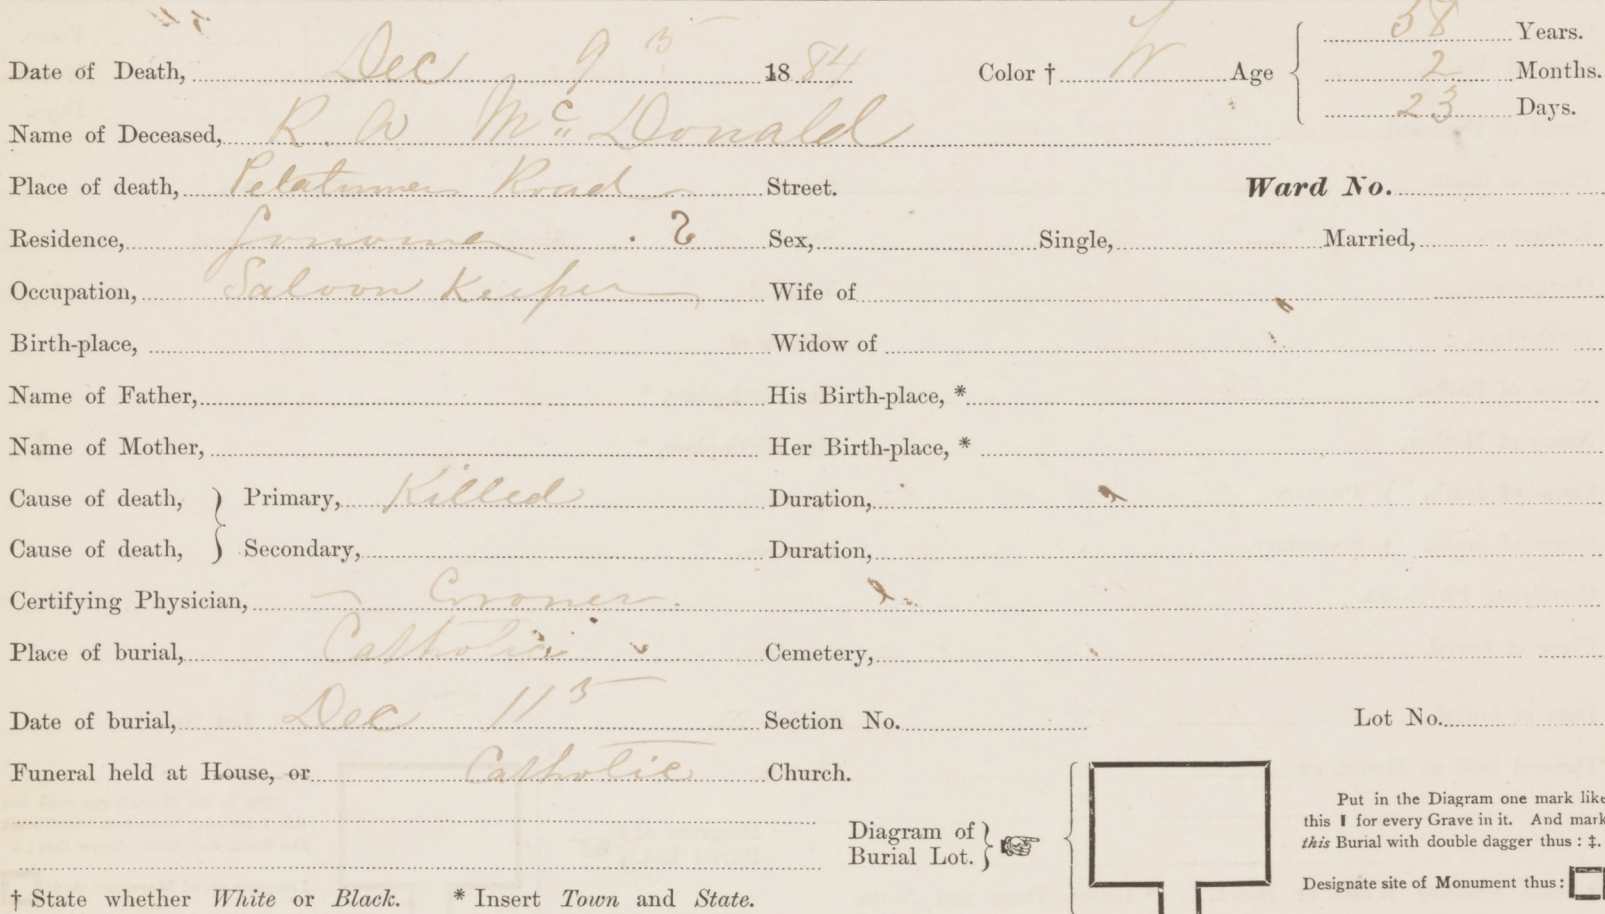 Date of Death, Dec 9th 1884 Color † W Age 58 Years. 2 Months. 23 Days.
Name of Deceased, R. W McDonald
Place of death, Petaluma Road Street. Ward No.
Residence, Sonoma Sex, Single, Married,
Occupation, Saloon Keeper Wife of
Birth-place, Widow of
Name of Father, His Birth-place, *
Name of Mother, Her Birth-place, *
Cause of death, Primary, Killed Duration,
Cause of death, Secondary, Duration,
Certifying Physician, Coroner.
Place of burial, Catholic Cemetery,
Date of burial, Dec 11th Section No. Lot No.
Funeral held at House, or Catholic Church.
Diagram of
Burial Lot.
Put in the Diagram one mark like
this I for every Grave in it. And mark
this Burial with double dagger thus : ‡.
Designate site of Monument thus :
† State whether White or Black. * Insert Town and State.